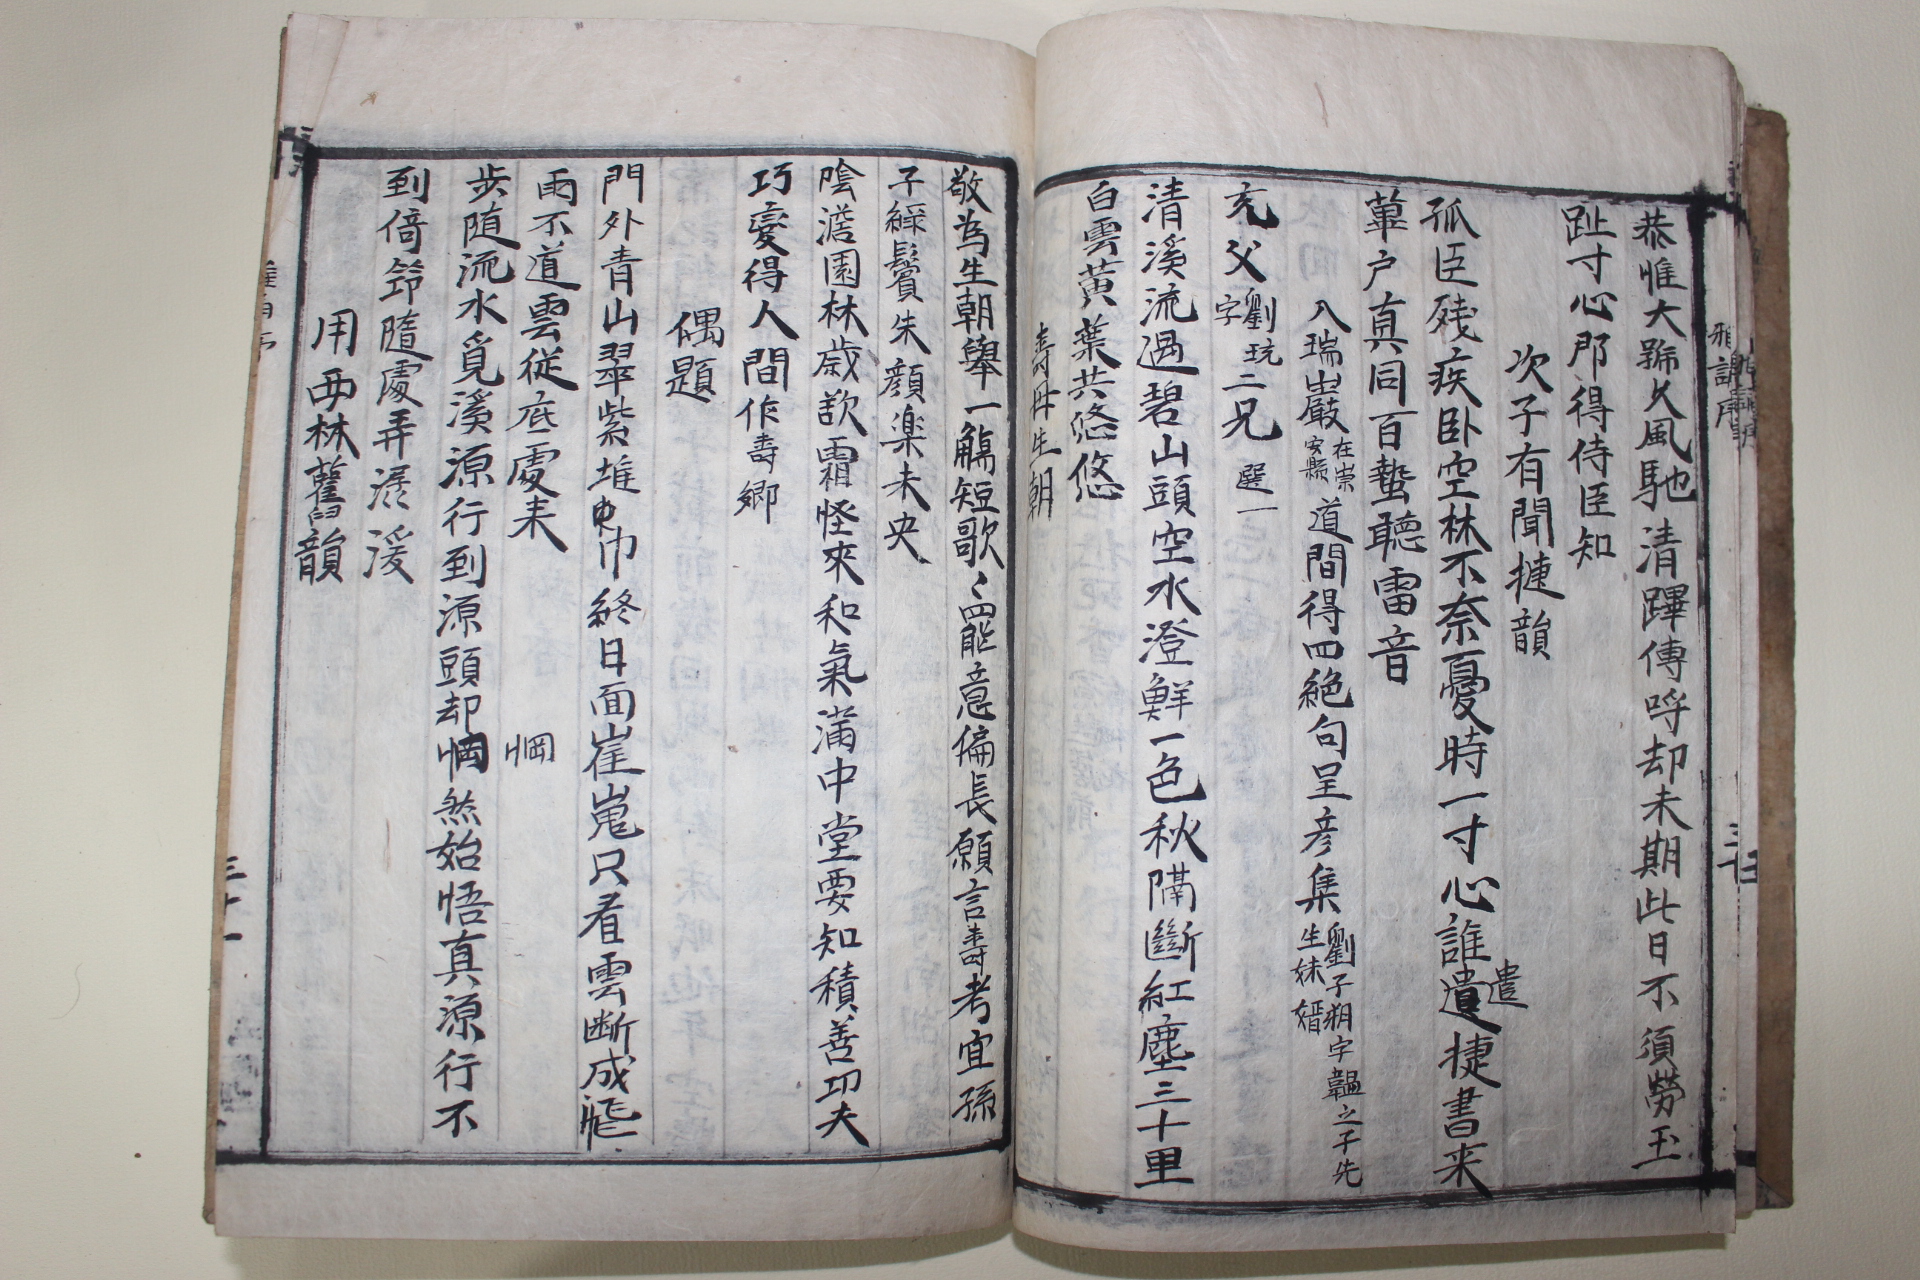 恭惟大號久風馳清蹕傳呼却未期此日不須勞玉
趾寸心那得侍臣知
次子有聞捷韻
孤臣残疾卧空林不奈憂時一寸心誰遺捷書来
遣
蓽户真同百蟄聽雷音
入瑞岩嚴在崇安縣道間得四絶句呈彦集劉子翔字韞之子先生妹婿
充父劉玩字二兄選一
清溪流過碧山頭空水澄鮮一色秋隔斷紅塵三十里
白雲黄葉共悠悠
壽母生朝
敬為生朝舉一觴短歌〻罷意偏長願言壽考宜孫
子緑鬢朱顔楽未央
陰澹園林歳歉霜怪來和氣滿中堂要知積善功夫
巧變得人人間作壽郷
偶題
門外青山翠紫堆幅巾終日面崔嵬只看雲断成飛
雨不道雲従底處来
步随流水覓溪源行到源頭却惘然始悟真源行不
惘
到倚筇隨處弄潺湲
用西林舊韻
三十一